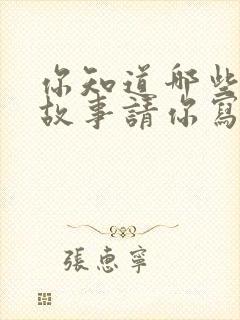 你知道那些
故事請你寫
張惠寧